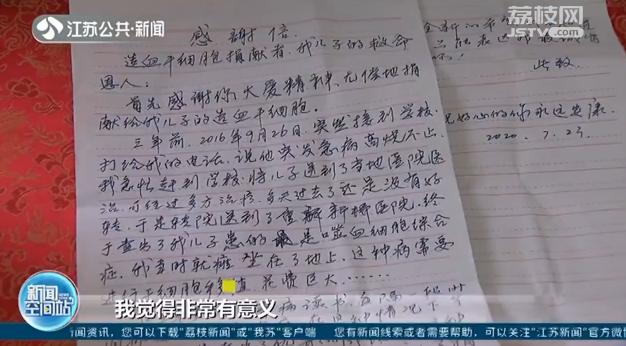 江苏公共·新闻
荔枝网
JSTV.COM
感谢信
造血干细胞捐献者,我儿子的救命
恩人:
首先感谢你大爱精神,无偿地捐
献给我儿子的造血干细胞。
三年前,2016年9月26日,突然接到学校
打给我的电话,说他突发急病高烧不止,
我急忙赶到学校,将儿子送到了当地医院医
治,可经过多方治疗,多天过去了还是没有好
转,于是转院送到了医院,终
于查出了我儿子患的是噬血细胞综合
症,我当时就瘫坐在了地上,这种病需要
进行干细胞移植,花费巨大……
此致
好心的你永远安康
2020.7.23
新闻
空间站
我觉得非常有意义
新闻资讯,您可以下载"荔枝新闻"或"我苏"客户端
您有新闻线索或者需要帮助,可以关注"江苏新闻"官方微